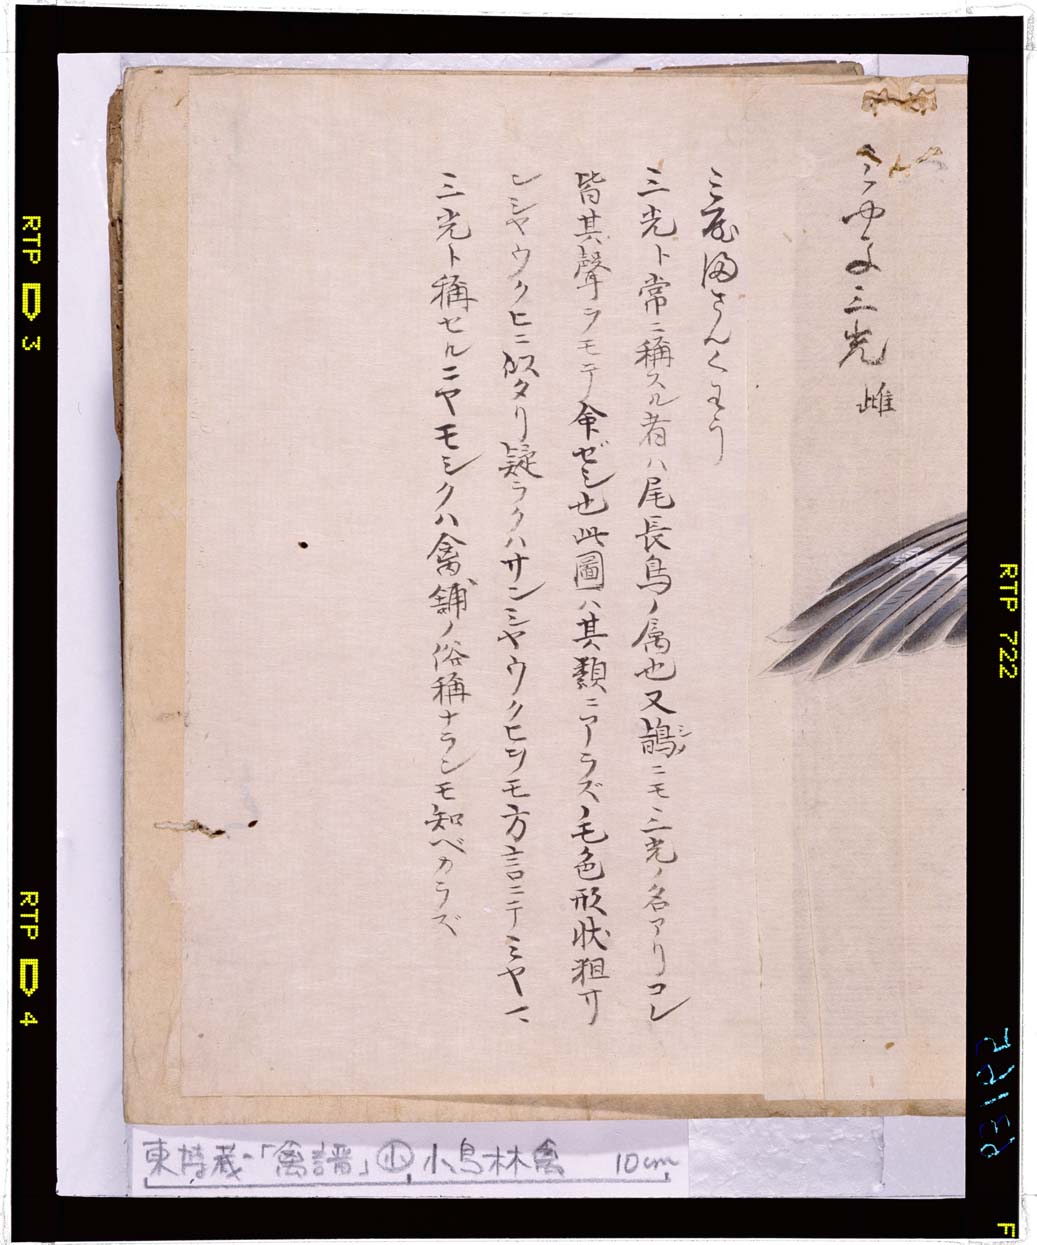 みやま三光 雌
みやまさんくわう
三光ト常ニ稱スル者ハ尾長鳥ノ属也又鴲ニモ三光ノ名アリコレ
シメ
皆其聲ヲモテ命ゼシ也此圖ハ其類ニアラズノ毛色形状狙サ
ンシヤウクヒニ似タリ疑ラクハサンミヤウクヒヲモ方言ニテミヤマ
三光ト稱セルニヤモシクハ禽舗ノ俗稱ナランモ知ベカラズ
東博蔵「禽譜」小 小鳥林禽 10cm
RTP 3
RTP 4
RTP 722
F